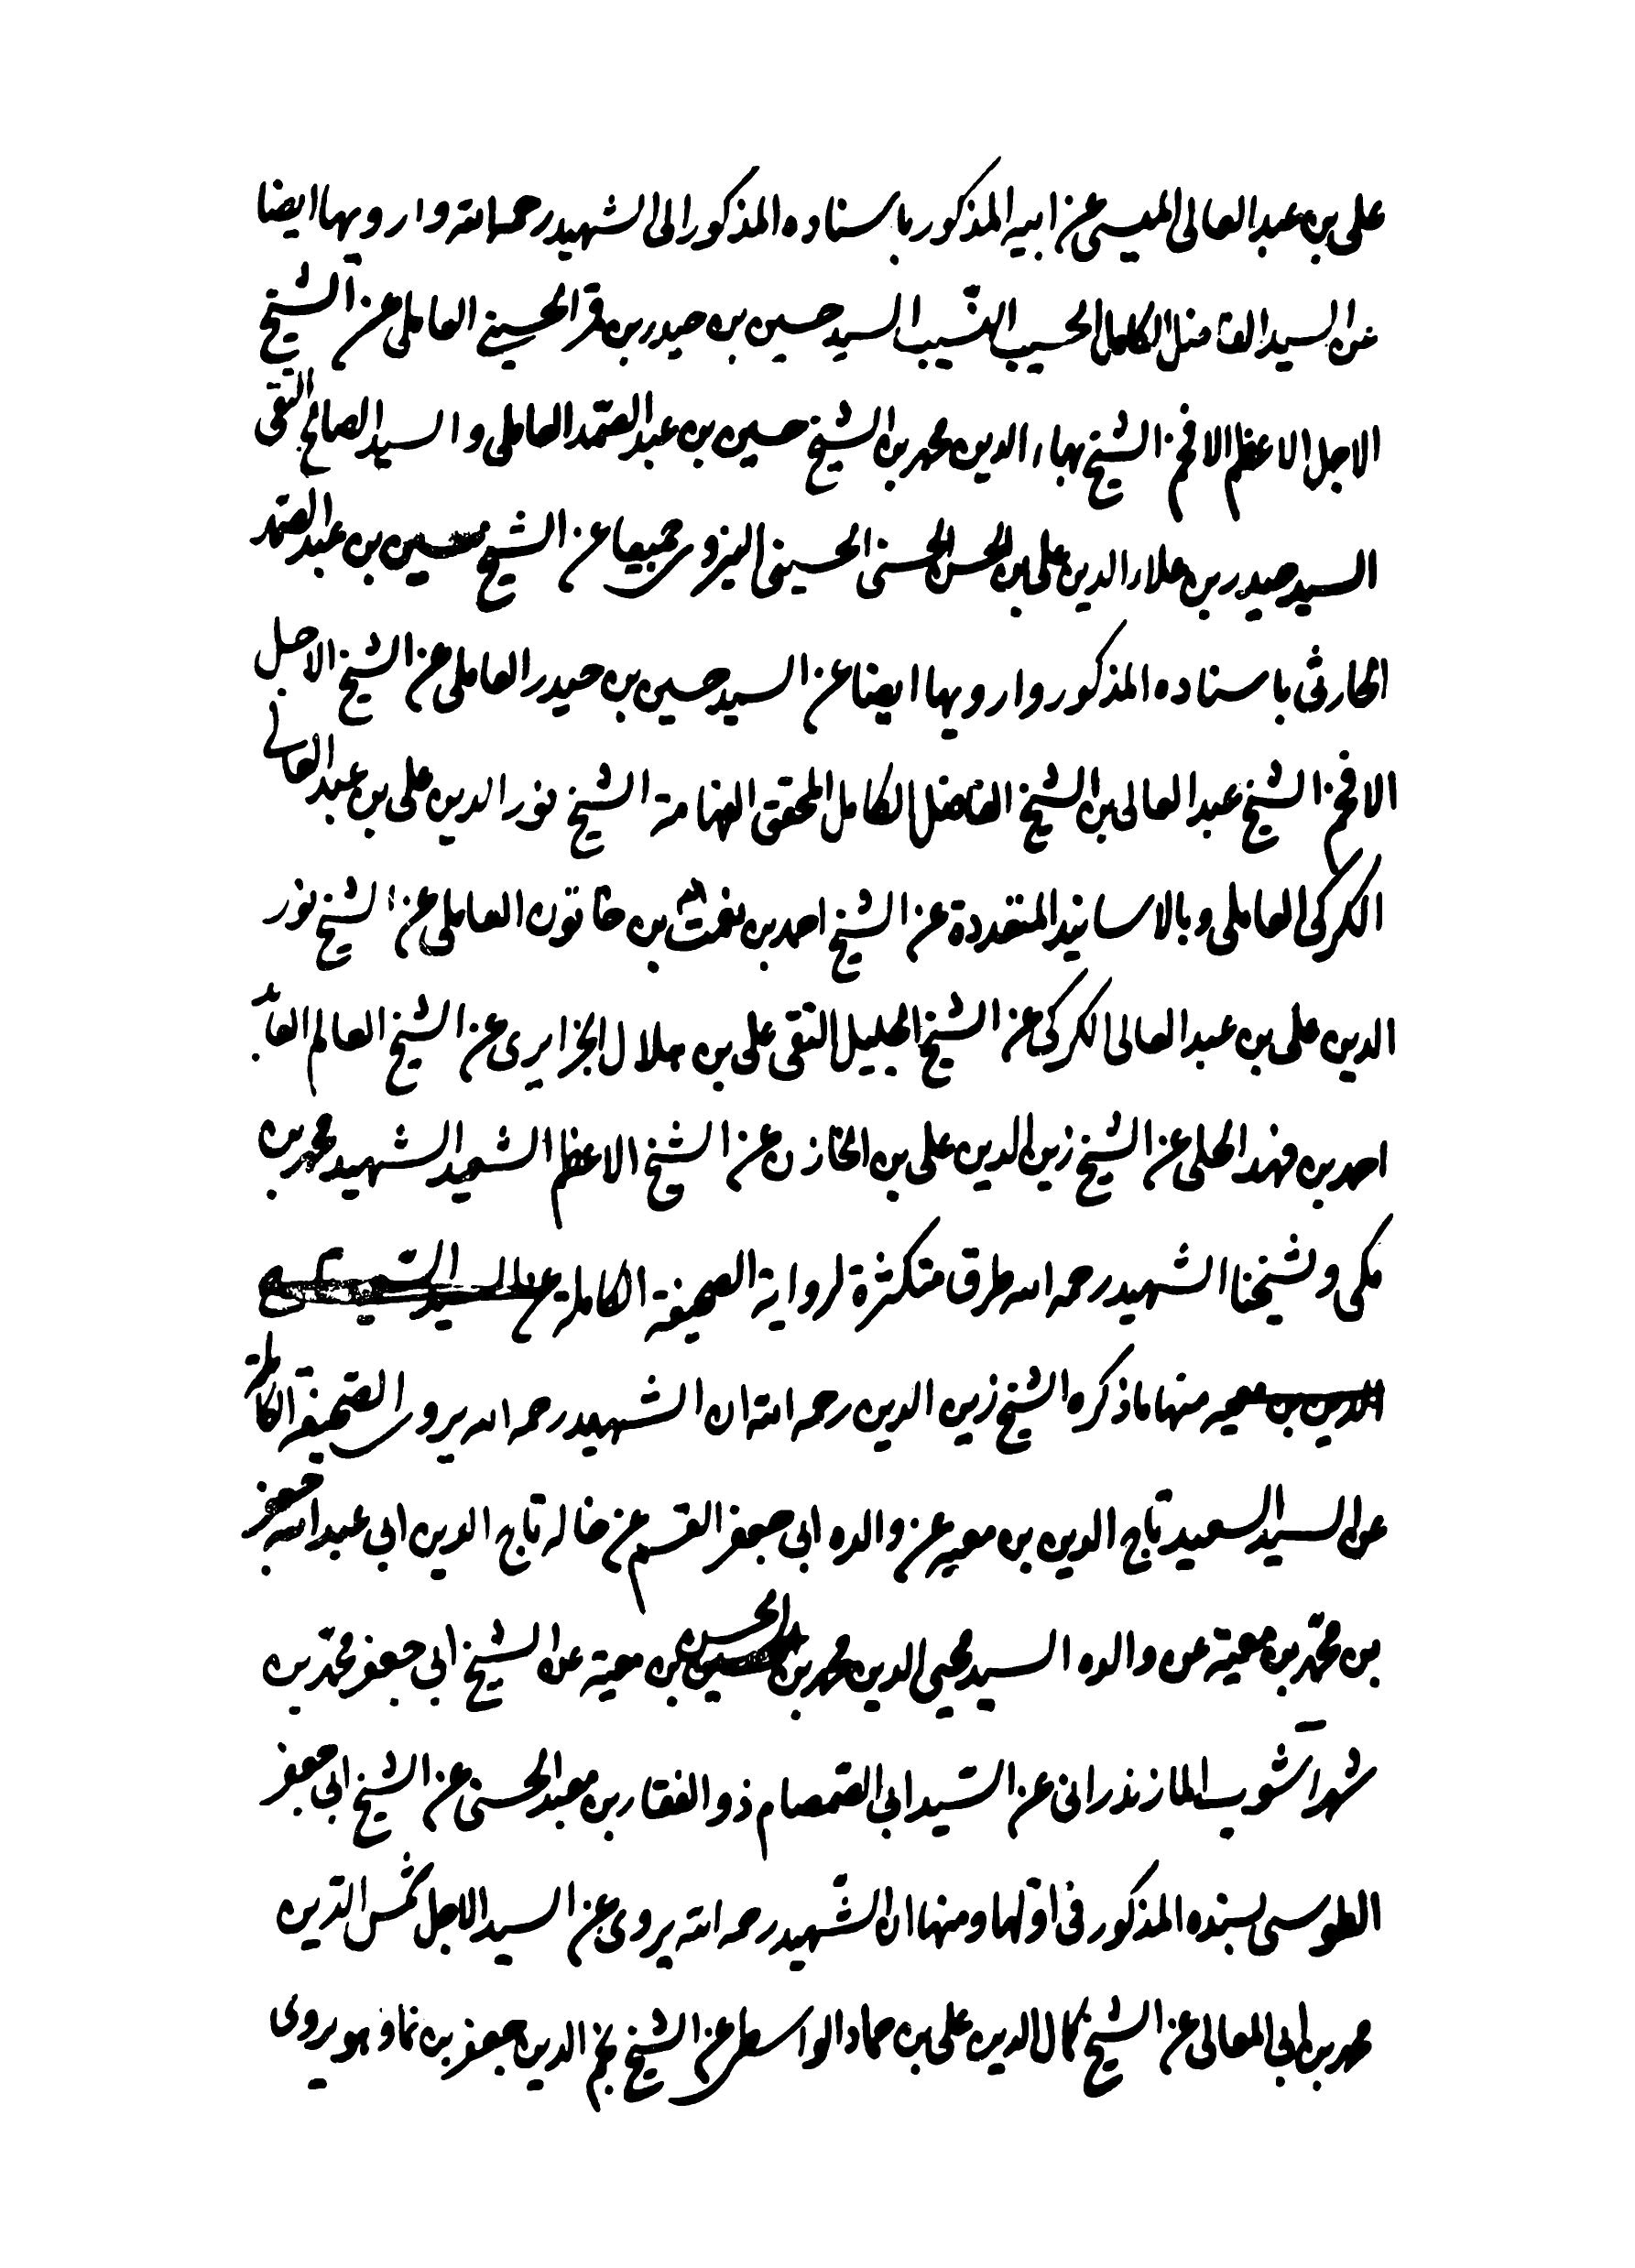 على بن عبد العالى الميسى عن ابيه المذكور باسناده المذكور الى الشهيد رحمه الله وارويها ايضا
عن السيد الفاضل الكامل الحسيب النسيب السيد حسين بن حيدر بن قمر الحسينى العاملى عن الشيخ
الاجل الاعظم الافخم الشيخ بهاء الدين محمد بن الشيخ حسين بن عبد الصمد العاملى والسيد الصالح التقى
السيد حيدر بن علاء الدين على بن الحسن الحسنى الحسينى البيزوى جميعا عن الشيخ حسين بن عبد الصمد
الحارثى باسناده المذكور وارويها ايضا عن السيد حسين بن حيدر العاملى عن الشيخ الاجل
الافخم الشيخ عبد العالى بن الشيخ الفاضل الكامل المحقق الفهامة الشيخ نور الدين على بن عبد العالى
الكركى العاملى وبالاسانيد المتعددة عن الشيخ احمد بن نعمت الله بن خاتون العاملى عن الشيخ نور
الدين على بن عبد العالى الكركى عن الشيخ الجليل التقى على بن هلال الجزايرى عن الشيخ العالم العابد
احمد بن فهد الحلى عن الشيخ زين الدين على بن الخازن عن الشيخ الاعظم السعيد الشهيد محمد بن
مكى ولشيخنا الشهيد رحمه الله طرق متكثرة لرواية الصحيفة الكاملة
منها ما ذكره الشيخ زين الدين رحمه الله ان الشهيد رحمه الله يروى الصحيفة الكاملة
عن السيد السعيد تاج الدين بن معيه عن والده ابى جعفر القسم عن خاله تاج الدين ابى عبد الله جعفر
بن محمد بن معية عن والده السيد مجيى الدين محمد بن الحسن بن معية عن الشيخ ابى جعفر محمد بن
شهرآشوب المازندرانى عن السيد ابى الصمصام ذو الفقار بن معبد الحسنى عن الشيخ ابى جعفر
الطوسى بسنده المذكور فى اولها ومنها ان الشهيد رحمه الله يروى عن السيد الاجل شمس الدين
محمد بن ابى المعالى عن الشيخ كمال الدين على بن حماد الواسطى عن الشيخ نجم الدين جعفر بن نما وهو يروى